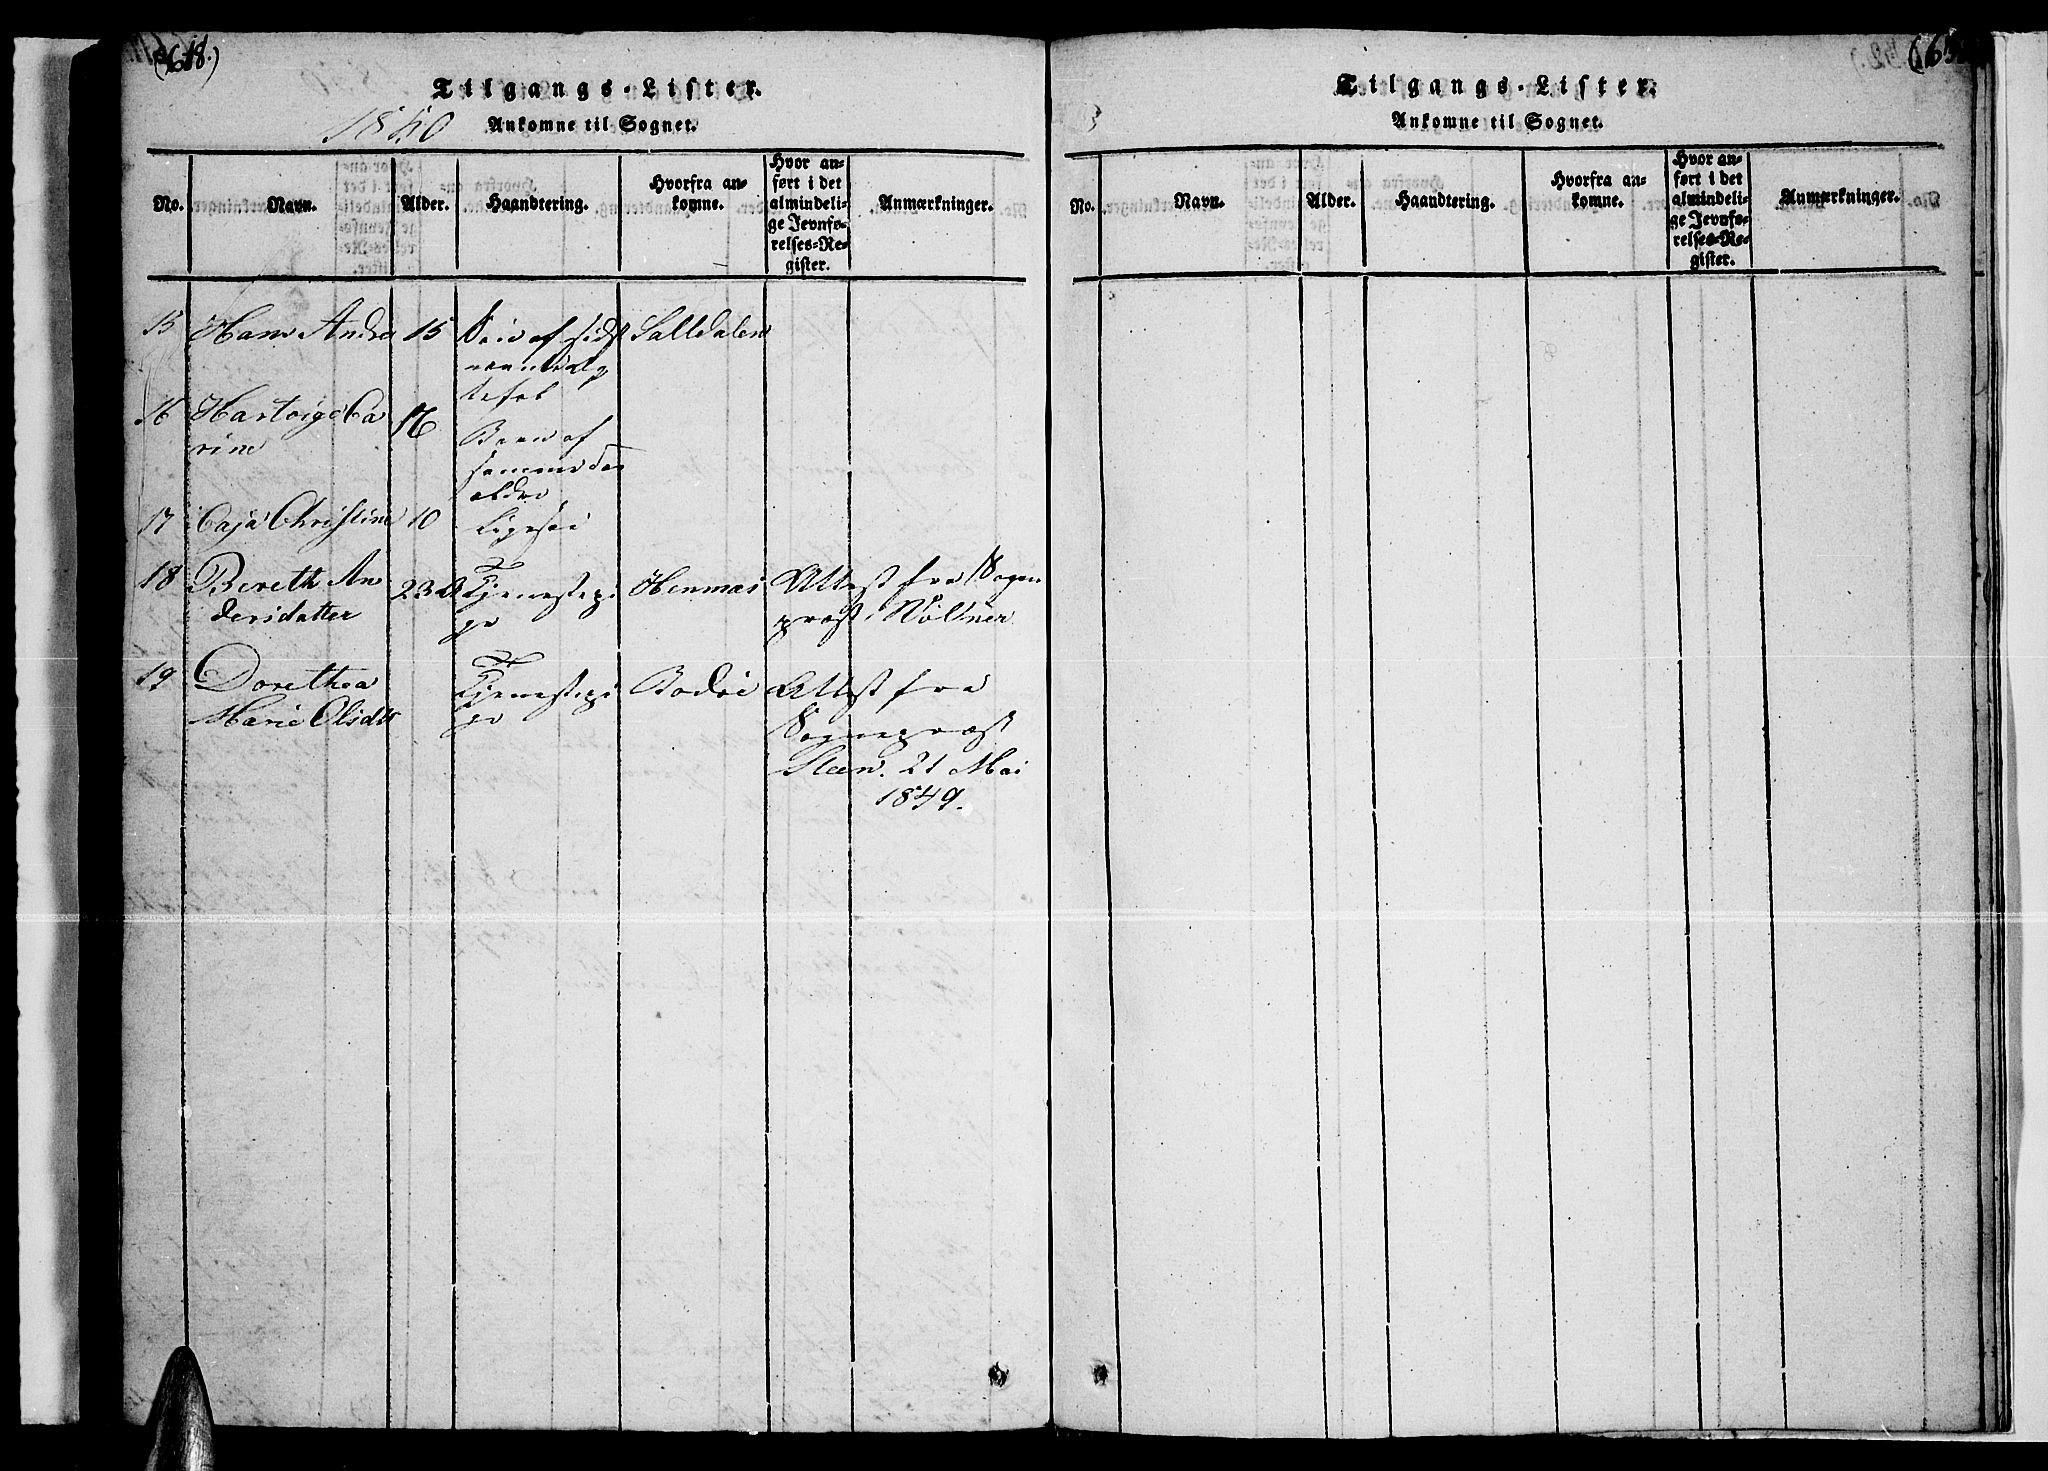 (618.)
Tilgangs-Lister.
1840
Ankomne til Sognet.
No.
Navn.
Alder.
Haandtering.
Hvorfra an-
komne.
Hvor an-
ført i det
almindeli-
ge Jevnfø-
relses-Re-
gister.
Anmærkninger.
15 Hans Andre 15 af sidst Salldalen
16 Hartvige Ca 16 Barn af
rine
samme
17 Caja Christine 10 Ligesaa
18 Bereth An 23 Tjenestepi Attest fra Sogne
dersdatter ge præst
19 Dorethea Tjenestepi Bodøe Attest fra
Marie Olsdtr ge Sognepræst
Steen. 21 Mai
1849.
Tilgangs-Lister.
Ankomne til Sognet.
No.
Navn.
Alder.
Haandtering.
Hvorfra an-
komne.
Hvor an-
ført i det
almindeli-
ge Jevnfø-
relses-Re-
gister.
Anmærkninger.